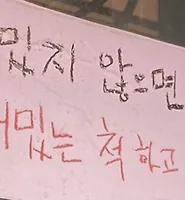 있지 않으면
미있는 척 하고